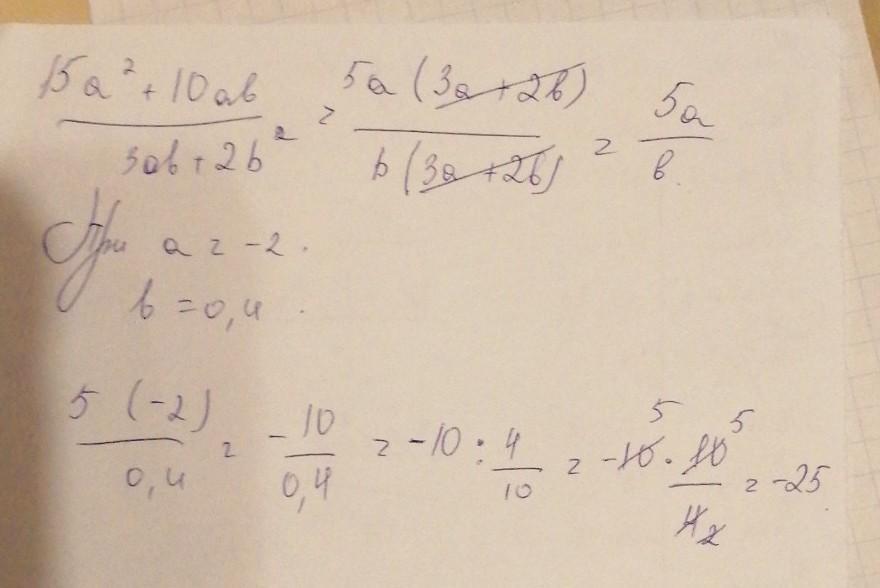 15a² + 10ab / 3ab + 2b² = 5a (3a + 2b) / b (3a + 2b) = 5a / b
При a = -2.
b = 0,4.
5 (-2) / 0,4 = -10 / 0,4 = -10 : 4 / 10 = -10 5 · 10 5 / 4 2 = -25